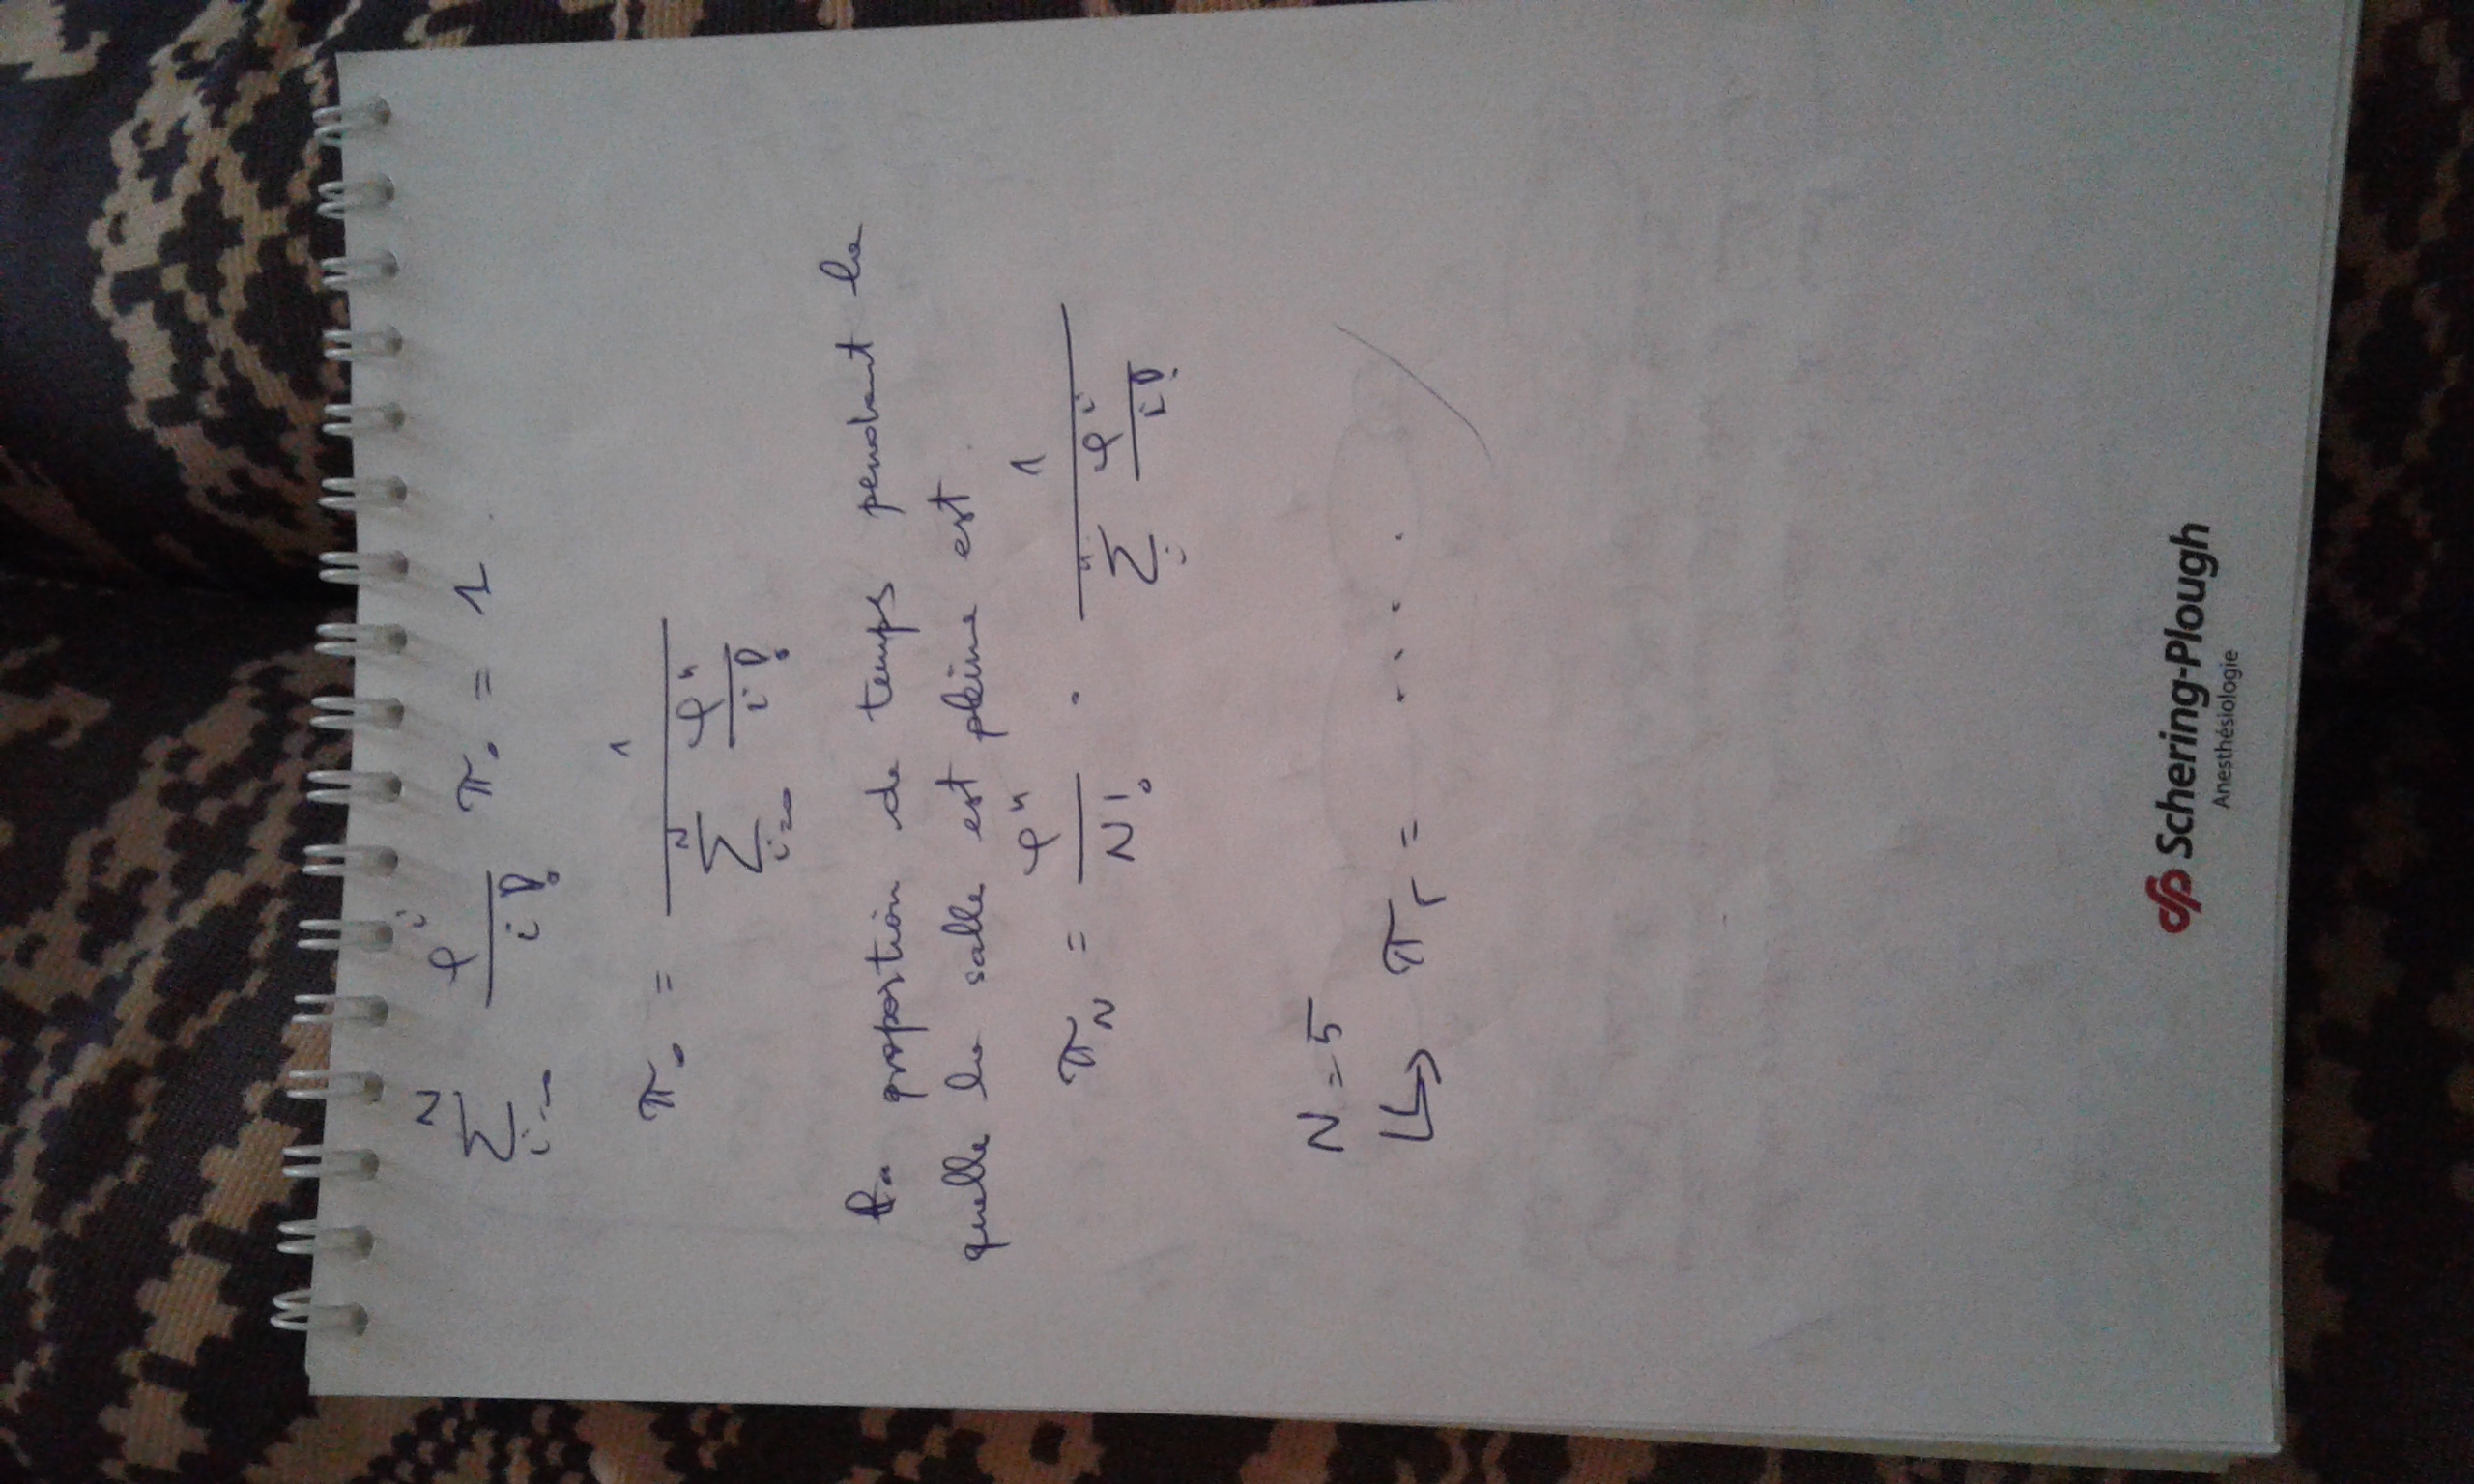 ∑_{i=0}^{N} φ^i / i! π₀ = 1
π₀ = 1 / ∑_{i=0}^{N} φ^n / i!
La proportion de temps pendant la
quelle la salle est pleine est
π_N = φ^n / N! · 1 / ∑_{i}^{n} φ^i / i!
N = 5
↳ π₅ = . . . .
Schering-Plough
Anesthésiologie